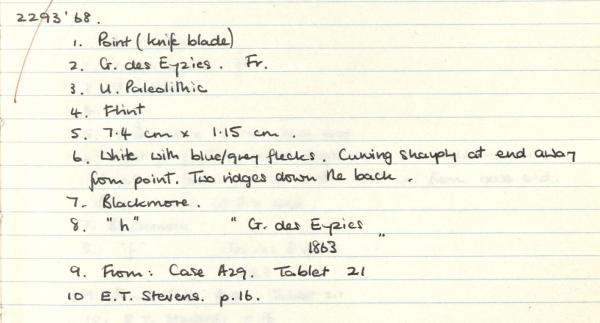 2293'68.
1. Point (knife blade)
2. G. des Eyzies. Fr.
3. U. Paleolithic
4. Flint
5. 7.4 cm x 1.15 cm.
6. White with blue/grey flecks. Curving sharply at end away
from point. Two ridges down the back.
7. Blackmore.
8. "h" " G. des Eyzies
1863 "
9. From: Case A29. Tablet 21
10 E.T. Stevens. p.16.